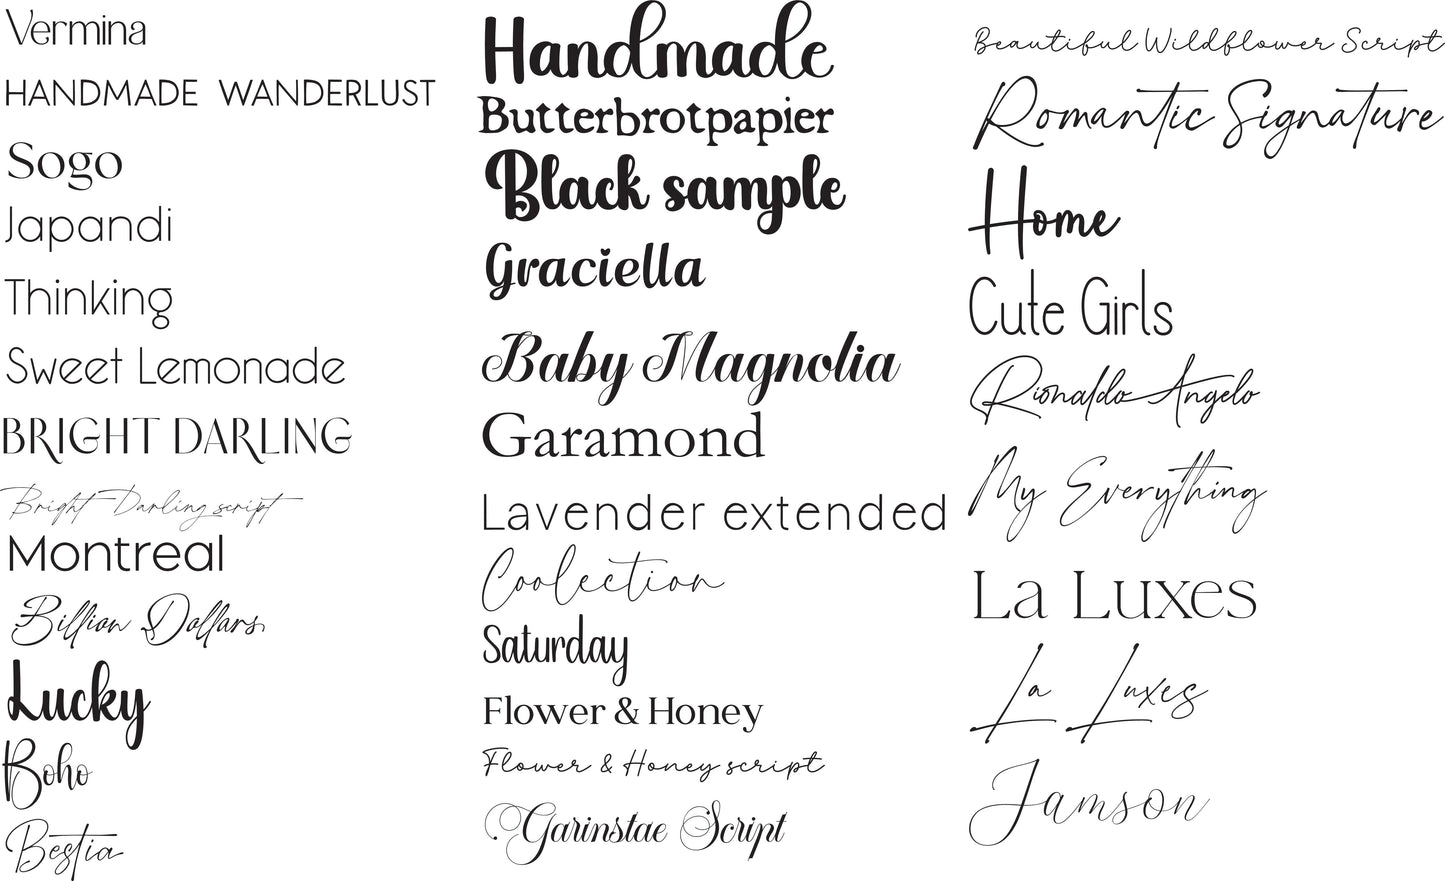 Vermina
HANDMADE WANDERLUST
Sogo
Japandi
Thinking
Sweet Lemonade
BRIGHT DARLING
Bright Darling script
Montreal
Billion Dollars
Lucky
Boho
Bestia
Handmade
Butterbrotpapier
Black sample
Graciella
Baby Magnolia
Garamond
Lavender extended
Coolection
Saturday
Flower & Honey
Flower & Honey script
Garinstae Script
Beautiful Wildflower Script
Romantic Signature
Home
Cute Girls
Rionaldo Angelo
My Everything
La Luxes
La Luxes
Jamson